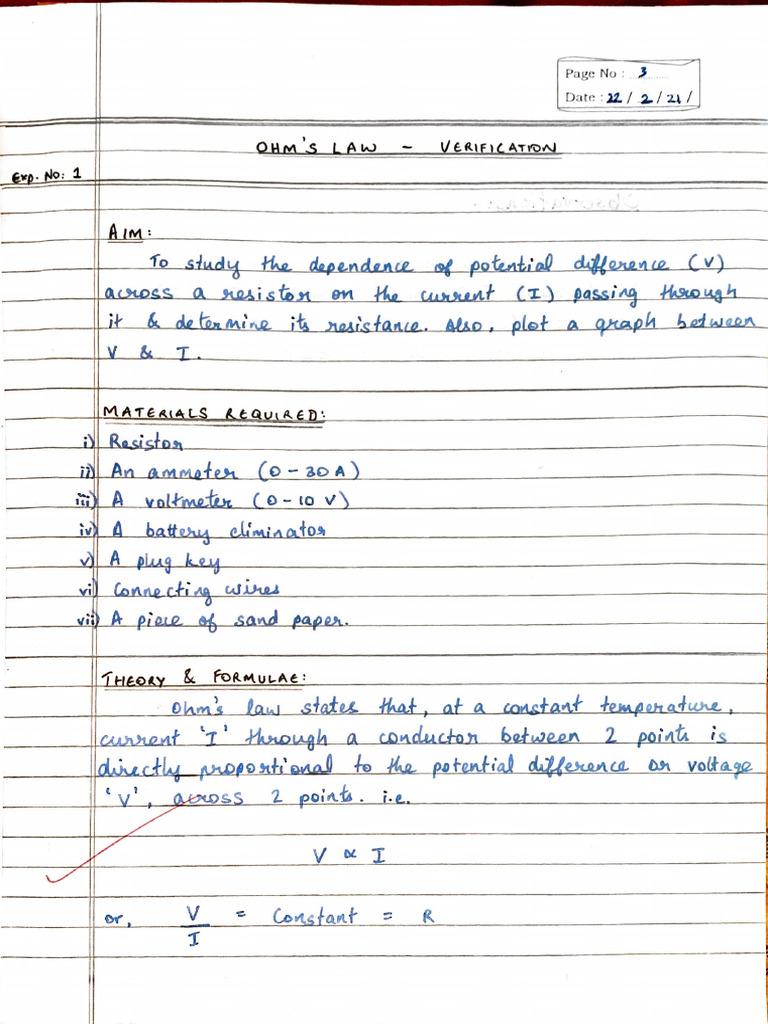 Page No : 3
Date : 22 / 2 / 21 /
OHM'S LAW - VERIFICATION
Exp. No: 1
Observations:
AIM:
To study the dependence of potential difference (V)
across a resistor on the current (I) passing through
it & determine its resistance. Also, plot a graph between
V & I.
MATERIALS REQUIRED:
i) Resistor
ii) An ammeter (0 - 30 A)
iii) A voltmeter (0 - 10 V)
iv) A battery eliminator
v) A plug key
vi) Connecting wires
vii) A piece of sand paper.
THEORY & FORMULAE:
Ohm's law states that, at a constant temperature,
current 'I' through a conductor between 2 points is
directly proportional to the potential difference or voltage
'V', across 2 points. i.e.
V ∝ I
or, V/I = Constant = R